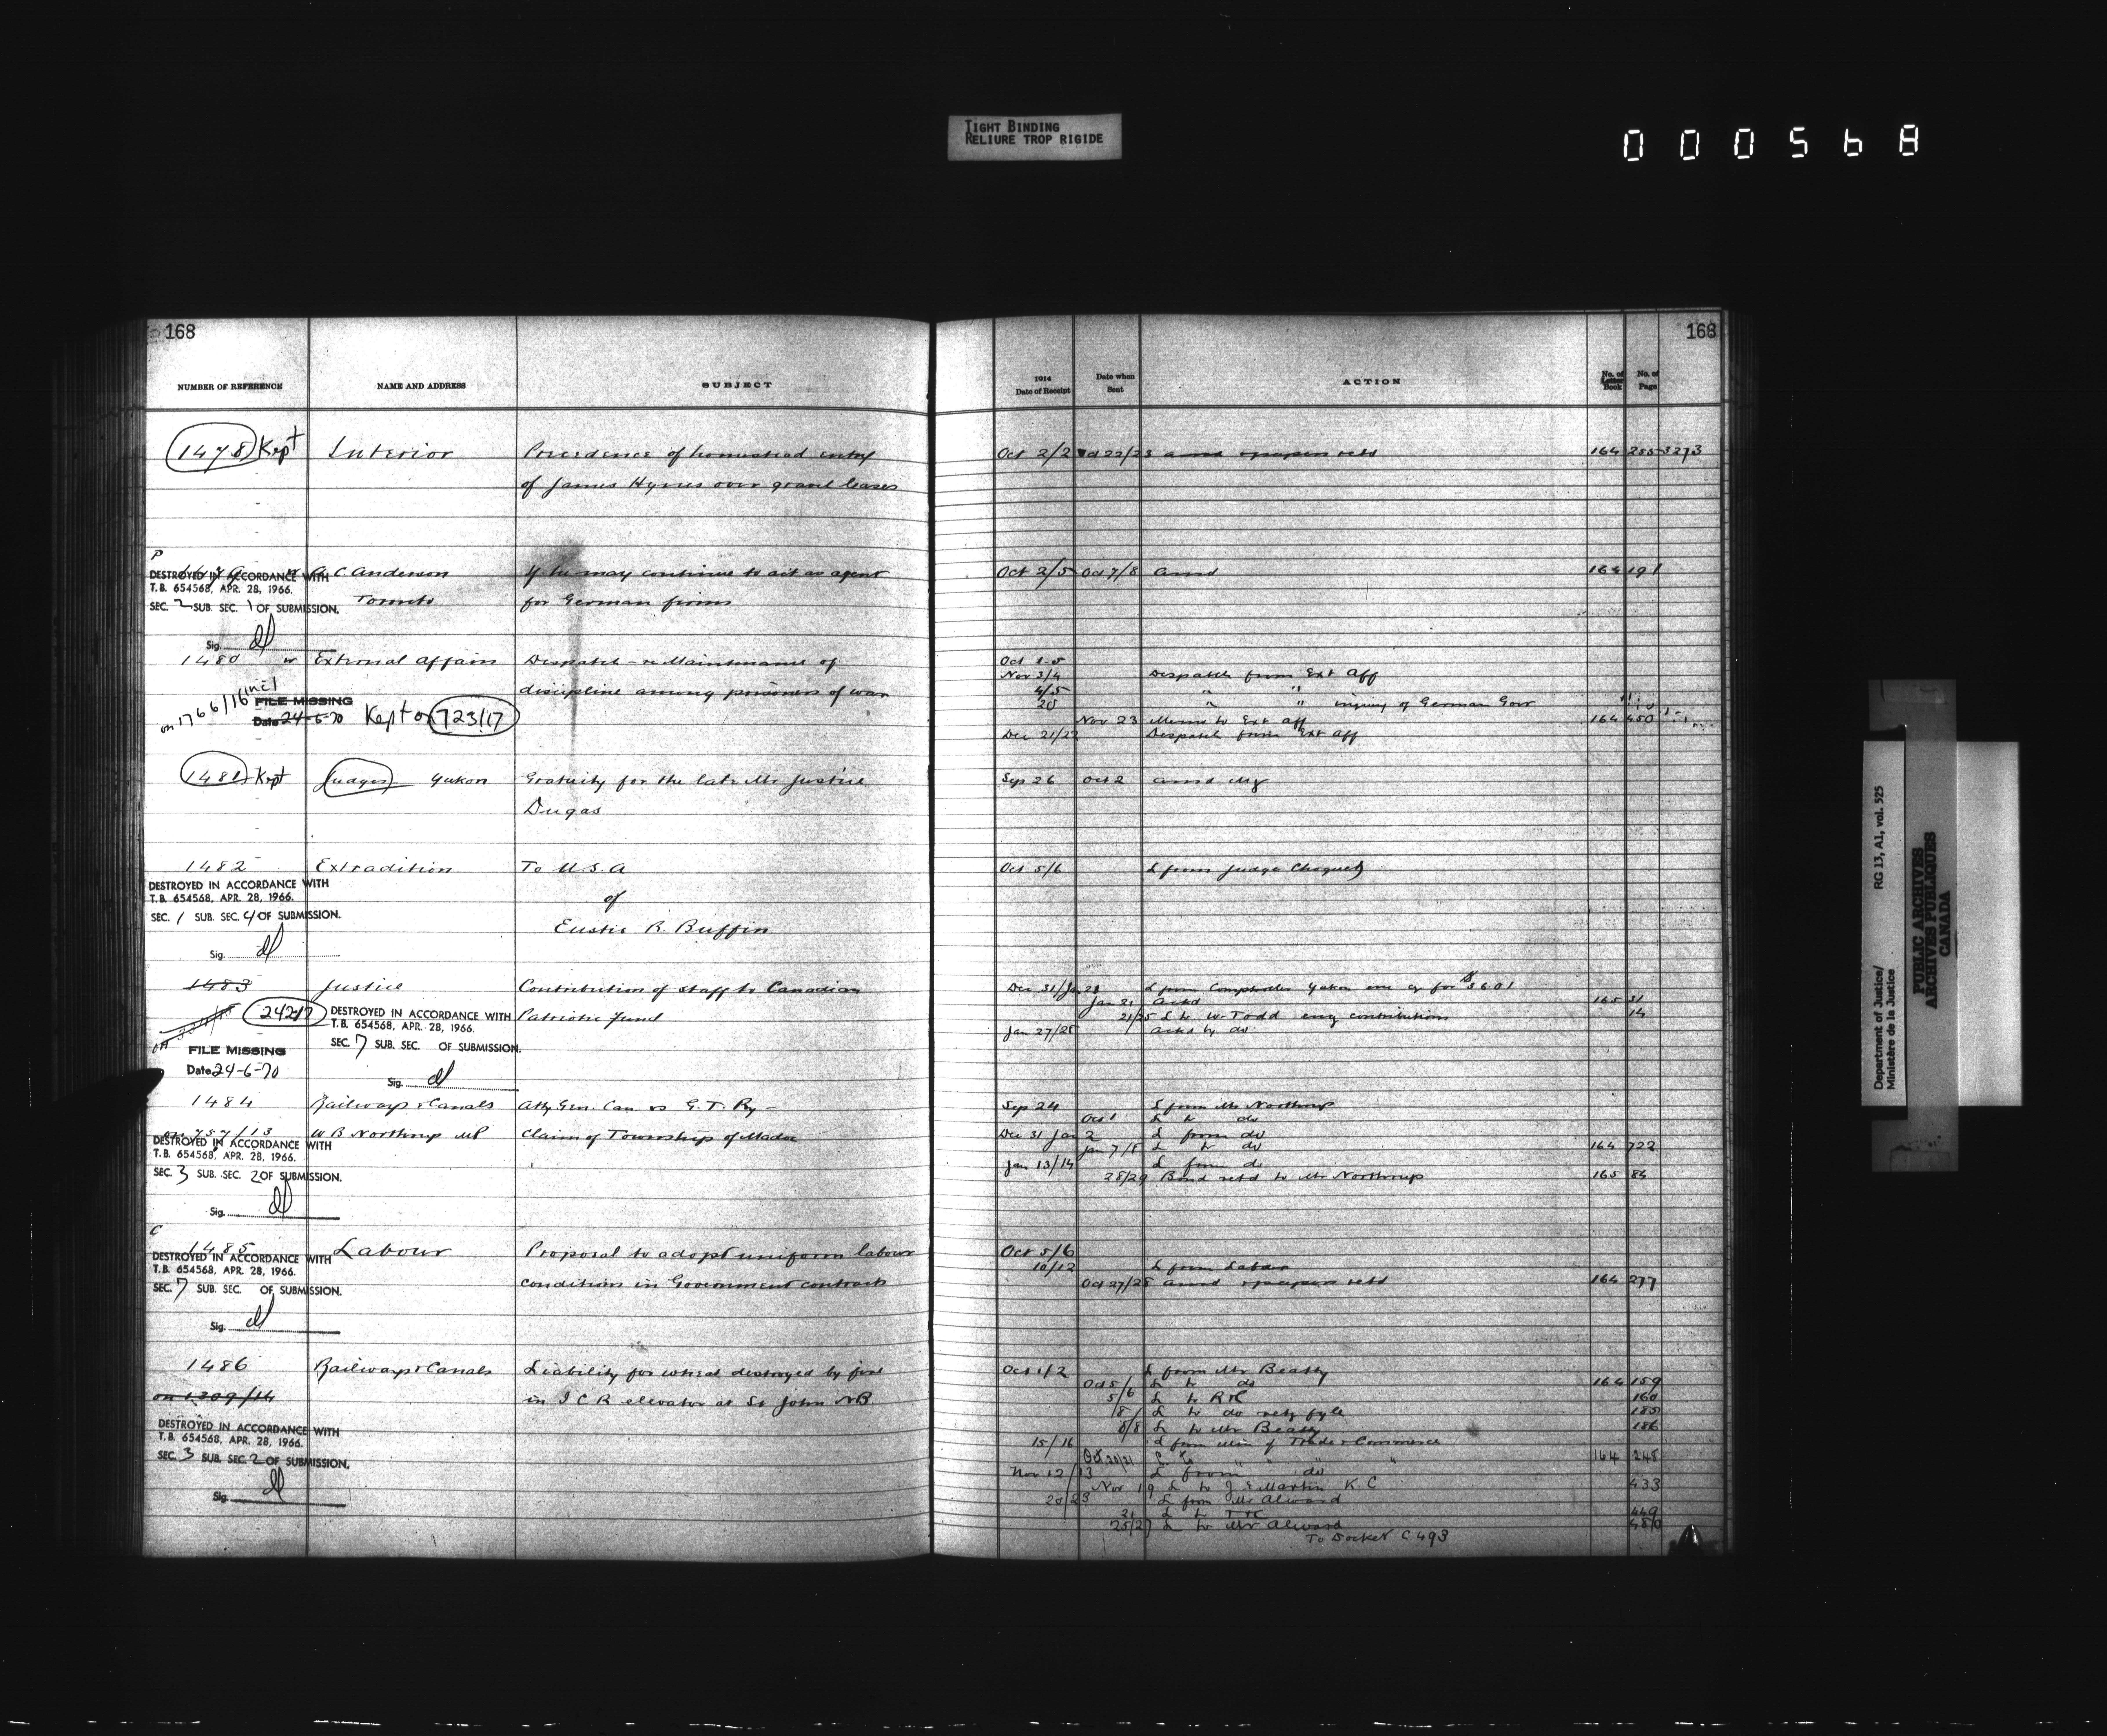 TIGHT BINDING
RELIURE TROP RIGIDE
000568
168
NUMBER OF REFERENCE NAME AND ADDRESS SUBJECT
1478 Kept Interior Precedence of homestead entry
of James Hynes over gravel leases
P
A.C. Anderson If he may continue to act as agent
DESTROYED IN ACCORDANCE WITH
T.B. 654568, APR. 28, 1966.
SEC. 2 SUB. SEC. 1 OF SUBMISSION.
Toronto for German firms
Sig.
1480 External Affairs Despatch - re Maintenance of
discipline among prisoners of war
on 1766/16 incl
FILE MISSING
Date 24-6-70 Kept on 723/17
1481 Kept Judges Yukon Gratuity for the late Mr Justice
Dugas
1482 Extradition To U.S.A
DESTROYED IN ACCORDANCE WITH
T.B. 654568, APR. 28, 1966.
SEC. 1 SUB. SEC. 4 OF SUBMISSION.
of
Eustis R. Buffin
Sig.
1483 Justice Contribution of staff to Canadian
2421 DESTROYED IN ACCORDANCE WITH Patriotic Fund
T.B. 654568, APR. 28, 1966.
SEC. 7 SUB. SEC. OF SUBMISSION.
FILE MISSING
Date 24-6-70
Sig.
1484 Railways & Canals Atty Gen. Can vs G.T. Ry -
on 757/13 W B Northrup MP Claim of Township of Madoc
DESTROYED IN ACCORDANCE WITH
T.B. 654568, APR. 28, 1966.
SEC. 3 SUB. SEC. 2 OF SUBMISSION.
Sig.
C
1485 Labour Proposal to adopt uniform labour
DESTROYED IN ACCORDANCE WITH
T.B. 654568, APR. 28, 1966.
conditions in Government contracts
SEC. 7 SUB. SEC. OF SUBMISSION.
Sig.
1486 Railways & Canals Liability for wheat destroyed by fire
on 1309/14 in I C R elevator at St John NB
DESTROYED IN ACCORDANCE WITH
T.B. 654568, APR. 28, 1966.
SEC. 3 SUB. SEC. 2 OF SUBMISSION.
Sig.
168
1914
Date of Receipt Date when Sent ACTION No. of Letter Book No. of Page
Oct 2/2 Oct 22/23 ansd & papers retd 164 255 3273
Oct 2/5 Oct 7/8 ansd 164 191
Oct
Nov 3/4 Despatch from Ext Aff
4/5 " "
20 " " inquiry of German Govr
Nov 23 Memo to Ext Aff 164 450
Dec 21/22 Despatch from Ext Aff
Sep 26 Oct 2 ansd
Oct 5/6 L from Judge Choquet
Dec 31/Jan L from Comptroller Yukon enc cq for
Jan 21 Ackd 165 31
21/25 L to W. Todd enc contributions 14
Jan 27/28 Ackd by do
Sep 24 L from Mr Northrup
Oct 1 L to do
Dec 31 Jan 2 L from do
Jan 7/8 L to do 164 722
Jan 13/14 L from do
28/29 Bond retd to Mr Northrup 165 84
Oct 5/6
10/12 L from Labour
Oct 27/28 ansd & papers retd 164 277
Oct 1/2 L from Mr Beatty
Oct 5/ L to do 164 159
5/6 L to R & C 160
/8 L to do retg fyle 185
8/8 L to Mr Beatty 186
15/16 L from Min of Trade & Commerce
Oct 20/21 L to " " " 164 248
Nov 12/13 L from do
Nov 19 L to J E Martin K C 433
20/23 L from Mr Alward
21 L to 449
25/27 L to Mr Alward 480
To Docket C 493
Department of Justice/
Ministère de la Justice
RG 13, A1, vol. 525
PUBLIC ARCHIVES
ARCHIVES PUBLIQUES
CANADA